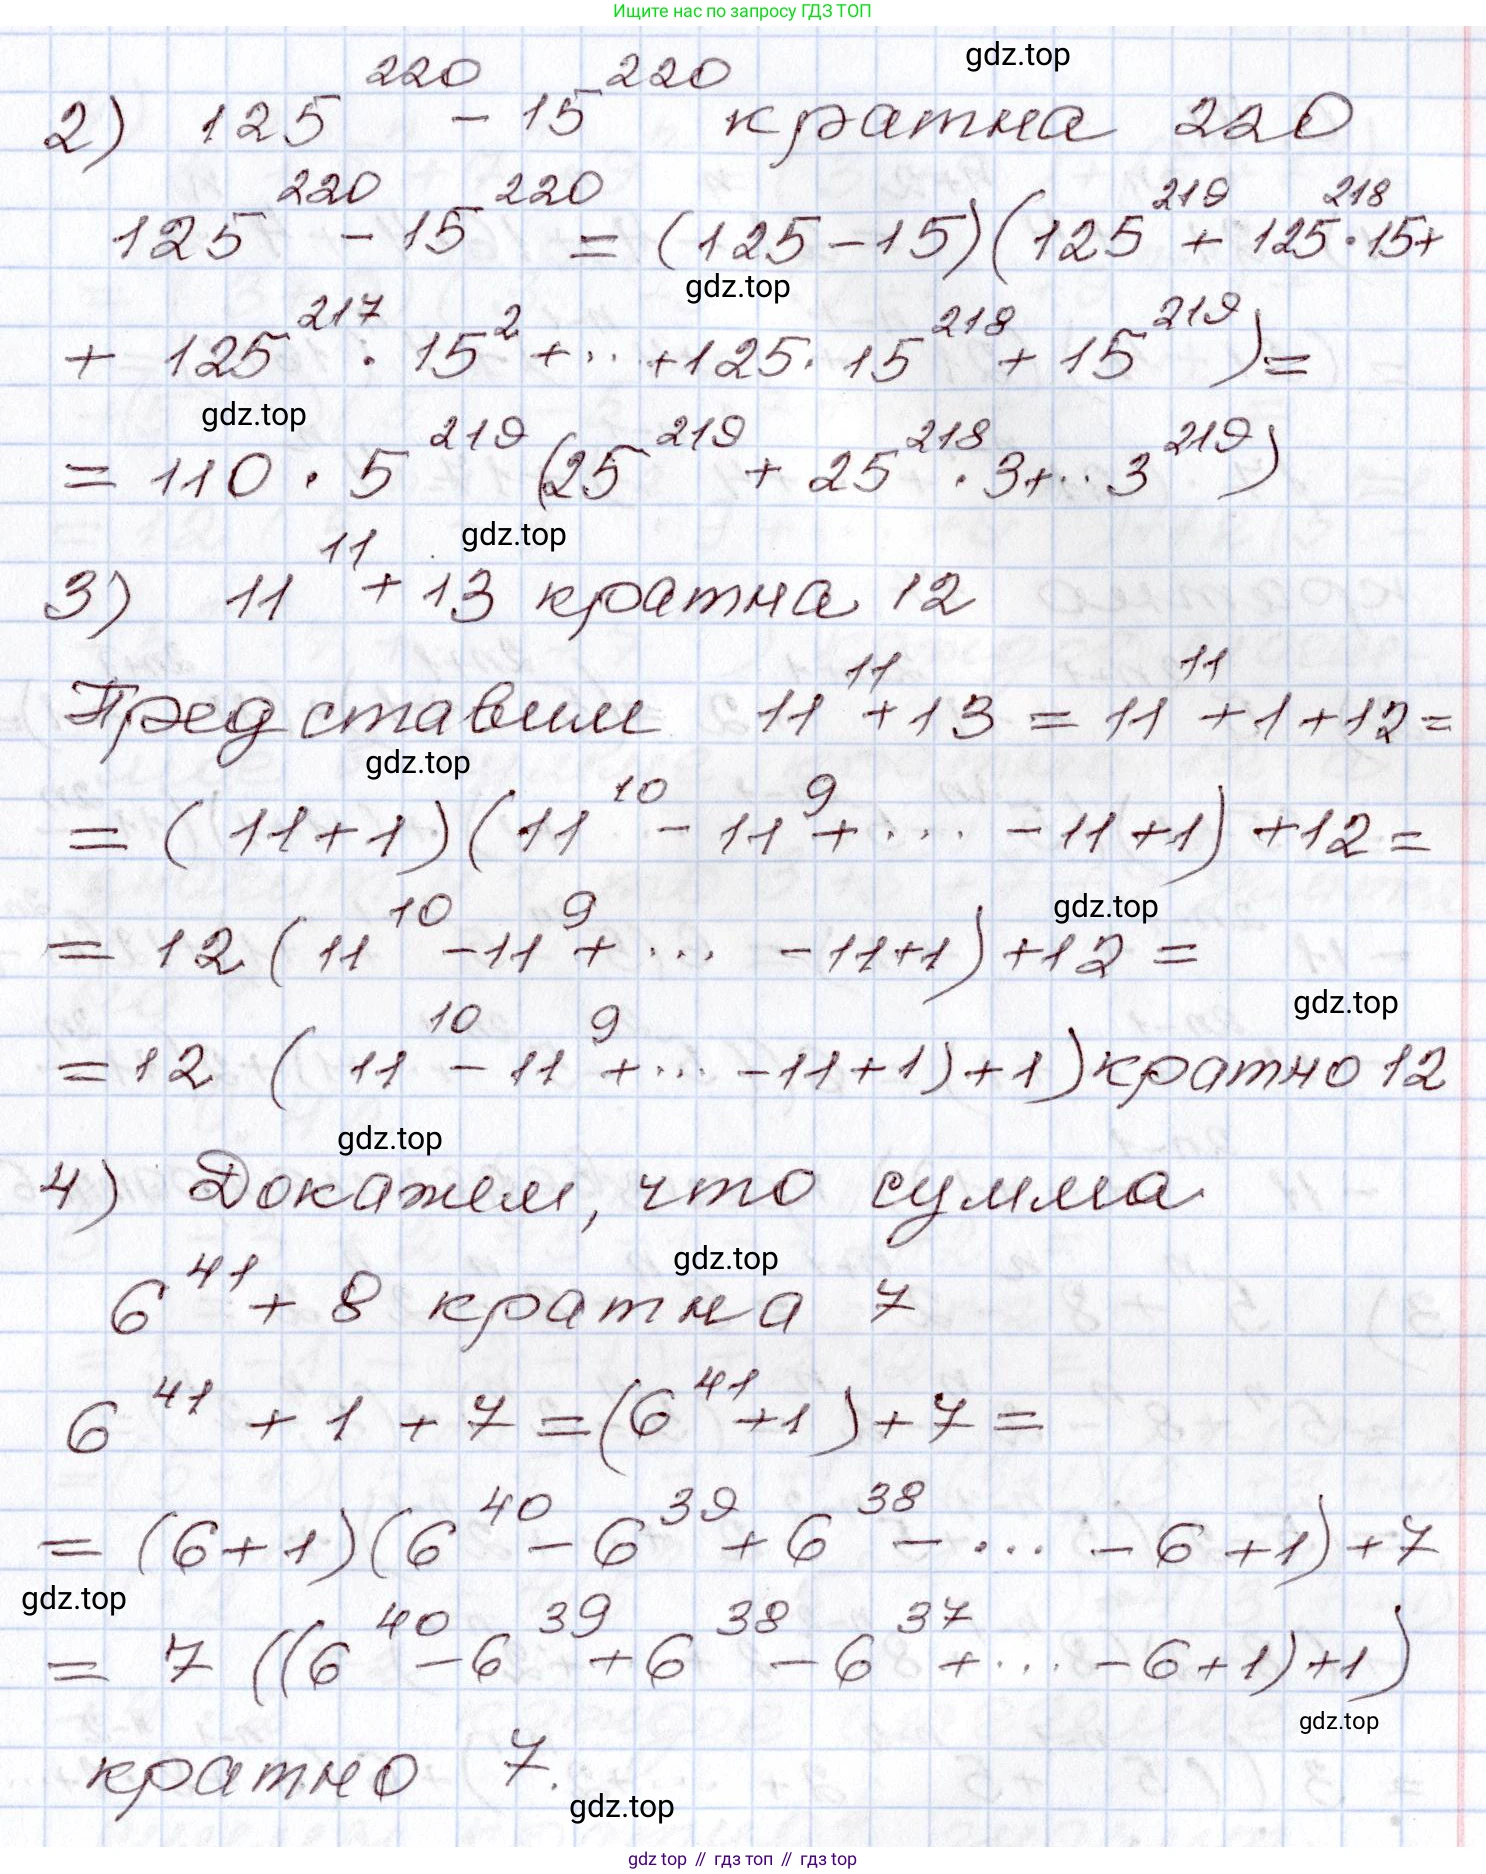 Ищите нас по запросу ГДЗ ТОП
gdz.top
2) 125^220 - 15^220 кратна 220
125^220 - 15^220 = (125 - 15)(125^219 + 125^218 · 15 +
gdz.top
+ 125^217 · 15^2 + ... + 125 · 15^218 + 15^219) =
gdz.top
= 110 · 5^219 (25^219 + 25^218 · 3 + ... 3^219)
gdz.top
3) 11^11 + 13 кратна 12
Представим 11^11 + 13 = 11^11 + 1 + 12 =
gdz.top
= (11 + 1)(11^10 - 11^9 + ... - 11 + 1) + 12 =
gdz.top
= 12 (11^10 - 11^9 + ... - 11 + 1) + 12 =
gdz.top
= 12 (11^10 - 11^9 + ... - 11 + 1) + 1) кратно 12
gdz.top
4) Докажем, что сумма
gdz.top
6^41 + 8 кратна 7
6^41 + 1 + 7 = (6^41 + 1) + 7 =
= (6 + 1)(6^40 - 6^39 + 6^38 - ... - 6 + 1) + 7
gdz.top
= 7 ((6^40 - 6^39 + 6^38 - 6^37 + ... - 6 + 1) + 1)
gdz.top
кратно 7.
gdz.top
gdz top // гдз топ // гдз.top